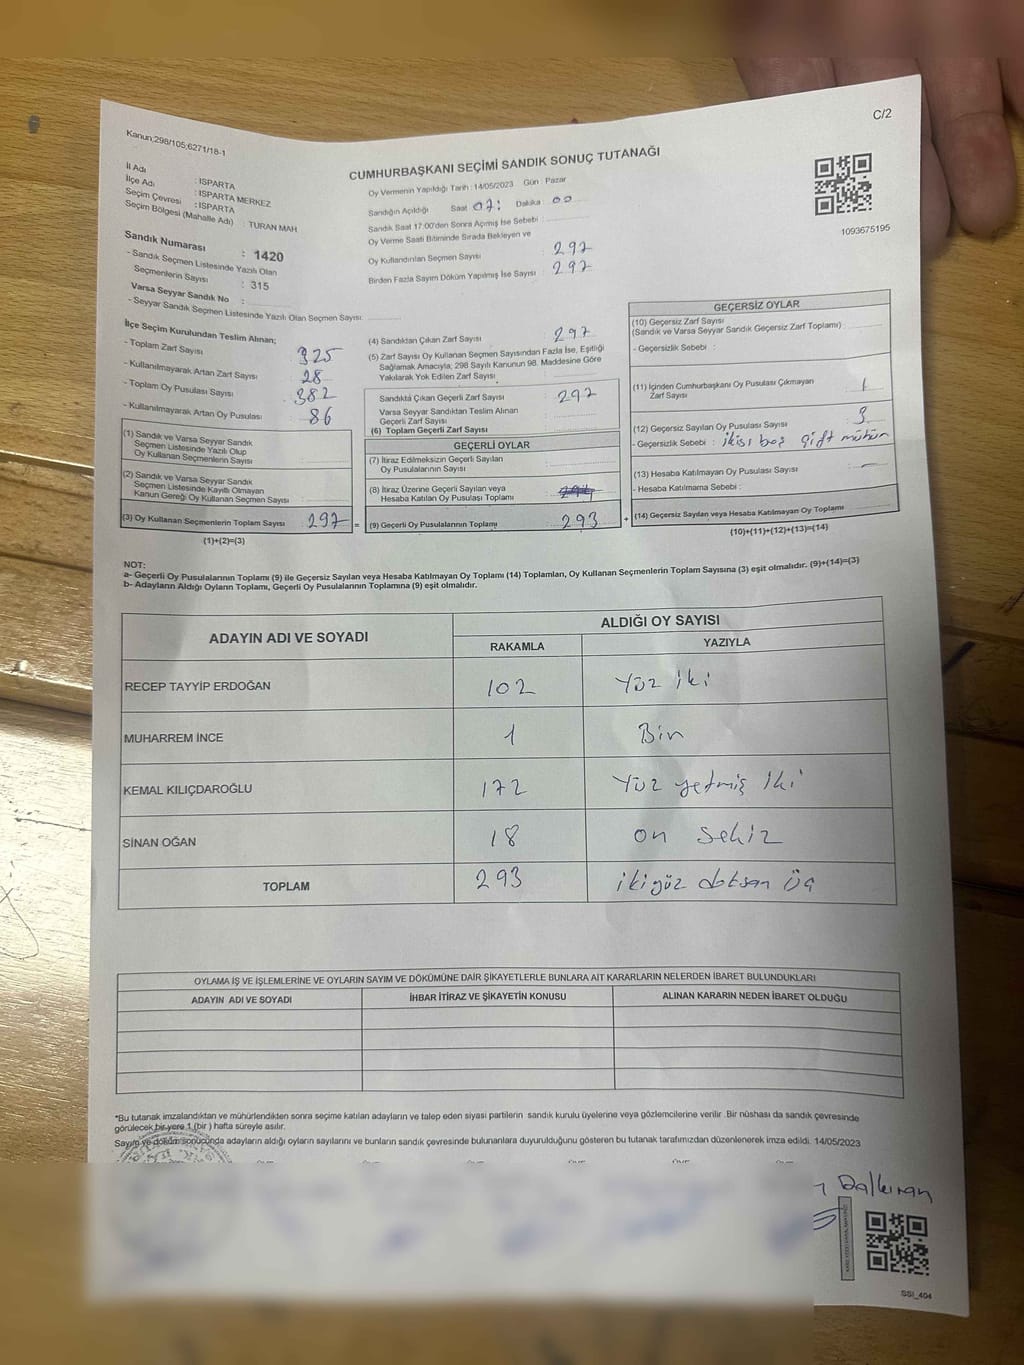 C/2
Kanun;298/105;6271/18-1
CUMHURBAŞKANI SEÇİMİ SANDIK SONUÇ TUTANAĞI
İl Adı : ISPARTA
İlçe Adı : ISPARTA MERKEZ
Seçim Çevresi : ISPARTA
Seçim Bölgesi (Mahalle Adı) : TURAN MAH
Oy Vermenin Yapıldığı Tarih : 14/05/2023 Gün : Pazar
Sandığın Açıldığı Saat 07: Dakika : 00
Sandık Saat 17:00'den Sonra Açılmış İse Sebebi :
Oy Verme Saati Bitiminde Sırada Bekleyen ve
Oy Kullandırılan Seçmen Sayısı : 297
Birden Fazla Sayım Döküm Yapılmış İse Sayısı : 297
1093675195
Sandık Numarası : 1420
- Sandık Seçmen Listesinde Yazılı Olan
Seçmenlerin Sayısı : 315
Varsa Seyyar Sandık No :
- Seyyar Sandık Seçmen Listesinde Yazılı Olan Seçmen Sayısı:
İlçe Seçim Kurulundan Teslim Alınan;
- Toplam Zarf Sayısı 325
- Kullanılmayarak Artan Zarf Sayısı 28
- Toplam Oy Pusulası Sayısı 382
- Kullanılmayarak Artan Oy Pusulası 86
(1) Sandık ve Varsa Seyyar Sandık
Seçmen Listesinde Yazılı Olup
Oy Kullanan Seçmenlerin Sayısı
(2) Sandık ve Varsa Seyyar Sandık
Seçmen Listesinde Kayıtlı Olmayan
Kanun Gereği Oy Kullanan Seçmen Sayısı
(3) Oy Kullanan Seçmenlerin Toplam Sayısı 297 =
(1)+(2)=(3)
(4) Sandıktan Çıkan Zarf Sayısı : 297
(5) Zarf Sayısı Oy Kullanan Seçmen Sayısından Fazla İse, Eşitliği
Sağlamak Amacıyla; 298 Sayılı Kanunun 98. Maddesine Göre
Yakılarak Yok Edilen Zarf Sayısı
Sandıkta Çıkan Geçerli Zarf Sayısı : 297
Varsa Seyyar Sandıktan Teslim Alınan
Geçerli Zarf Sayısı
(6) Toplam Geçerli Zarf Sayısı
GEÇERLİ OYLAR
(7) İtiraz Edilmeksizin Geçerli Sayılan
Oy Pusulalarının Sayısı
(8) İtiraz Üzerine Geçerli Sayılan veya
Hesaba Katılan Oy Pusulası Toplamı
(9) Geçerli Oy Pusulalarının Toplamı : 293 +
GEÇERSİZ OYLAR
(10) Geçersiz Zarf Sayısı
(Sandık ve Varsa Seyyar Sandık Geçersiz Zarf Toplamı)
- Geçersizlik Sebebi :
(11) İçinden Cumhurbaşkanı Oy Pusulası Çıkmayan
Zarf Sayısı : 1
(12) Geçersiz Sayılan Oy Pusulası Sayısı : 3
- Geçersizlik Sebebi : ikisi boş çift mühür
(13) Hesaba Katılmayan Oy Pusulası Sayısı : -
- Hesaba Katılmama Sebebi :
(14) Geçersiz Sayılan veya Hesaba Katılmayan Oy Toplamı
(10)+(11)+(12)+(13)=(14)
NOT:
a- Geçerli Oy Pusulalarının Toplamı (9) ile Geçersiz Sayılan veya Hesaba Katılmayan Oy Toplamı (14) Toplamları, Oy Kullanan Seçmenlerin Toplam Sayısına (3) eşit olmalıdır. (9)+(14)=(3)
b- Adayların Aldığı Oyların Toplamı, Geçerli Oy Pusulalarının Toplamına (9) eşit olmalıdır.
ADAYIN ADI VE SOYADI ALDIĞI OY SAYISI
RAKAMLA YAZIYLA
RECEP TAYYİP ERDOĞAN 102 Yüz iki
MUHARREM İNCE 1 Bir
KEMAL KILIÇDAROĞLU 172 Yüz yetmiş iki
SİNAN OĞAN 18 on sekiz
TOPLAM 293 ikiyüz doksan üç
OYLAMA İŞ VE İŞLEMLERİNE VE OYLARIN SAYIM VE DÖKÜMÜNE DAİR ŞİKAYETLERLE BUNLARA AİT KARARLARIN NELERDEN İBARET BULUNDUKLARI
ADAYIN ADI VE SOYADI İHBAR İTİRAZ VE ŞİKAYETİN KONUSU ALINAN KARARIN NEDEN İBARET OLDUĞU
*Bu tutanak imzalandıktan ve mühürlendikten sonra seçime katılan adayların ve talep eden siyasi partilerin sandık kurulu üyelerine veya gözlemcilerine verilir .Bir nüshası da sandık çevresinde
görülecek bir yere 1 (bir ) hafta süreyle asılır.
Sayım ve döküm sonucunda adayların aldığı oyların sayılarını ve bunların sandık çevresinde bulunanlara duyurulduğunu gösteren bu tutanak tarafımızdan düzenlenerek imza edildi. 14/05/2023
Dalkıran
SSI_404